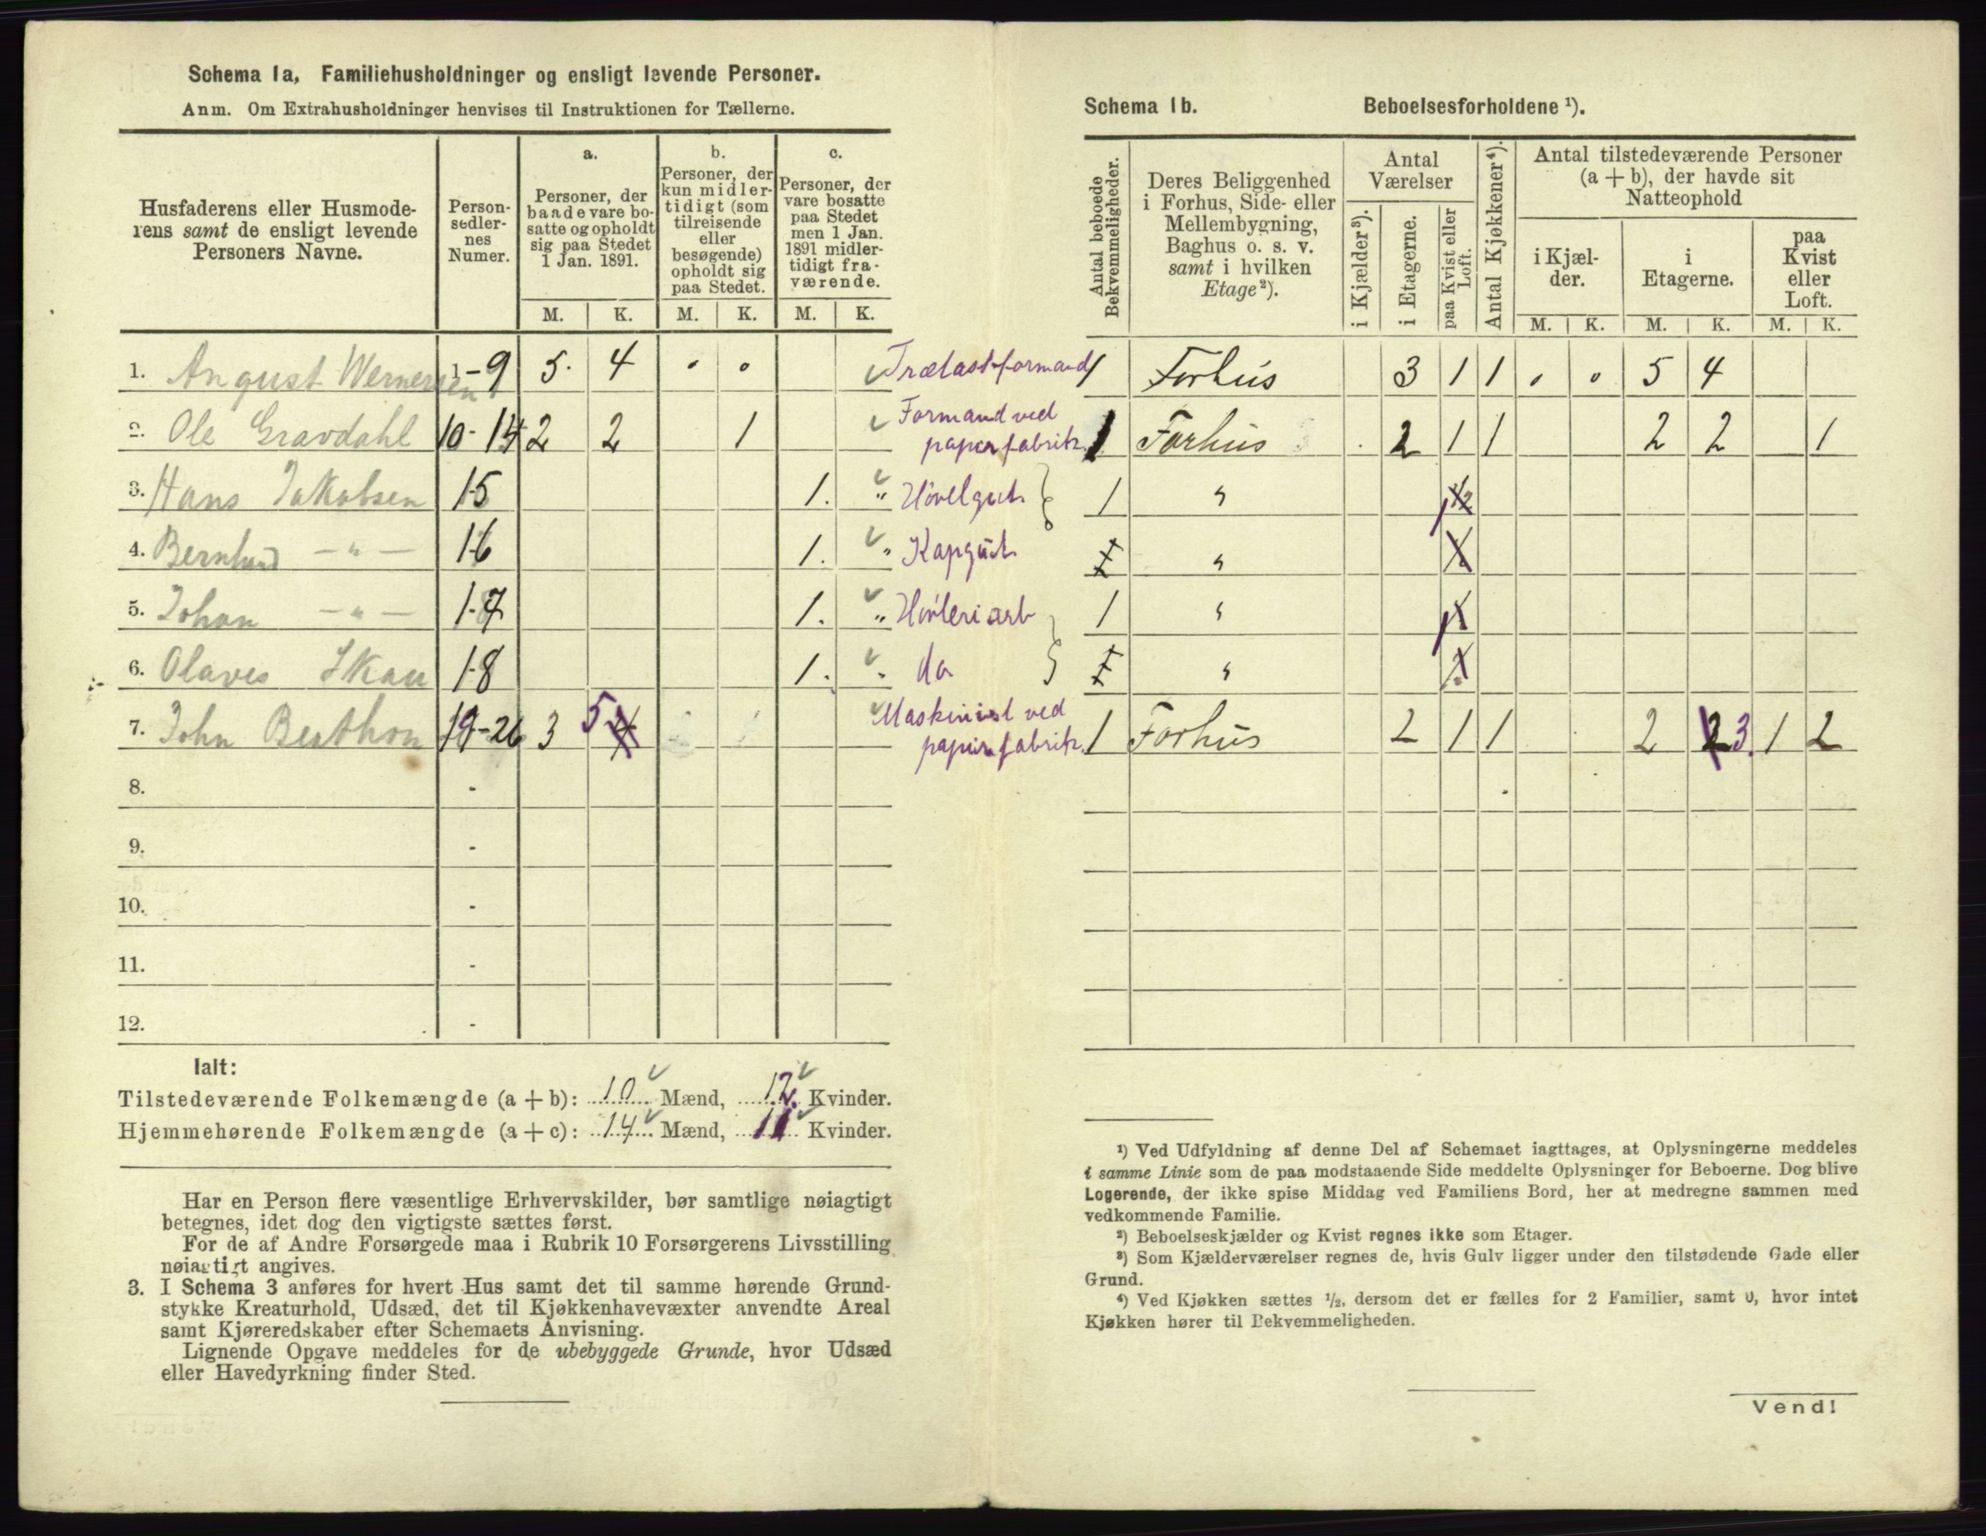 Schema 1a, Familiehusholdninger og ensligt levende Personer.
Anm. Om Extrahusholdninger henvises til Instruktionen for Tællerne.
Husfaderens eller Husmoderens samt de ensligt levende Personers Navne.
Personsedlernes Numer.
a.
Personer, der baade vare bosatte og opholdt sig paa Stedet 1 Jan. 1891.
b.
Personer, der kun midlertidigt (som tilreisende eller besøgende) opholdt sig paa Stedet.
c.
Personer, der vare bosatte paa Stedet men 1 Jan. 1891 midlertidigt fraværende.
M. K. M. K. M. K.
1. August Wernersen 1-9 5. 4 Trælastformand
2. Ole Gravdahl 10-14 2 2 1 Formand ved
papirfabrik
3. Hans Jakobsen 15 1. " Høvelgut
4. Bernhard — " — 16 1. " Kapgut
5. Johan — " — 17 1. " Høvleriarb
6. Olaves Skau 18 1. " do
7. John Berthon 19-26 3 5 4 Maskinist ved
papirfabrik
8. -
9. -
10. -
11. -
12. -
Ialt:
Tilstedeværende Folkemængde (a + b): 10 Mænd, 12 Kvinder.
Hjemmehørende Folkemængde (a + c): 14 Mænd, 11 Kvinder.
Har en Person flere væsentlige Erhvervskilder, bør samtlige nøiagtigt
betegnes, idet dog den vigtigste sættes først.
For de af Andre Forsørgede maa i Rubrik 10 Forsørgerens Livsstilling
nøiagtigt angives.
3. I Schema 3 anføres for hvert Hus samt det til samme hørende Grund-
stykke Kreaturhold, Udsæd, det til Kjøkkenhavevæxter anvendte Areal
samt Kjøreredskaber efter Schemaets Anvisning.
Lignende Opgave meddeles for de ubebyggede Grunde, hvor Udsæd
eller Havedyrkning finder Sted.
Schema 1b. Beboelsesforholdene ¹).
Antal beboede Bekvemmeligheder.
Deres Beliggenhed i Forhus, Side- eller Mellembygning, Baghus o. s. v. samt i hvilken Etage ²).
Antal Værelser
i Kjælder ³).
i Etagerne.
paa Kvist eller Loft.
Antal Kjøkkener ⁴).
Antal tilstedeværende Personer (a + b), der havde sit Natteophold
i Kjælder.
i Etagerne.
paa Kvist eller Loft.
M. K. M. K. M. K.
1 Forhus 3 1 1 5 4
1 Forhus 2 1 1 2 2 1
1 " 1
"
1 " 1
"
1 Forhus 2 1 1 2 3. 1 2
¹) Ved Udfyldning af denne Del af Schemaet iagttages, at Oplysningerne meddeles
i samme Linie som de paa modstaaende Side meddelte Oplysninger for Beboerne. Dog blive
Logerende, der ikke spise Middag ved Familiens Bord, her at medregne sammen med
vedkommende Familie.
²) Beboelseskjælder og Kvist regnes ikke som Etager.
³) Som Kjælderværelser regnes de, hvis Gulv ligger under den tilstødende Gade eller
Grund.
⁴) Ved Kjøkken sættes ½, dersom det er fælles for 2 Familier, samt 0, hvor intet
Kjøkken hører til Bekvemmeligheden.
Vend!